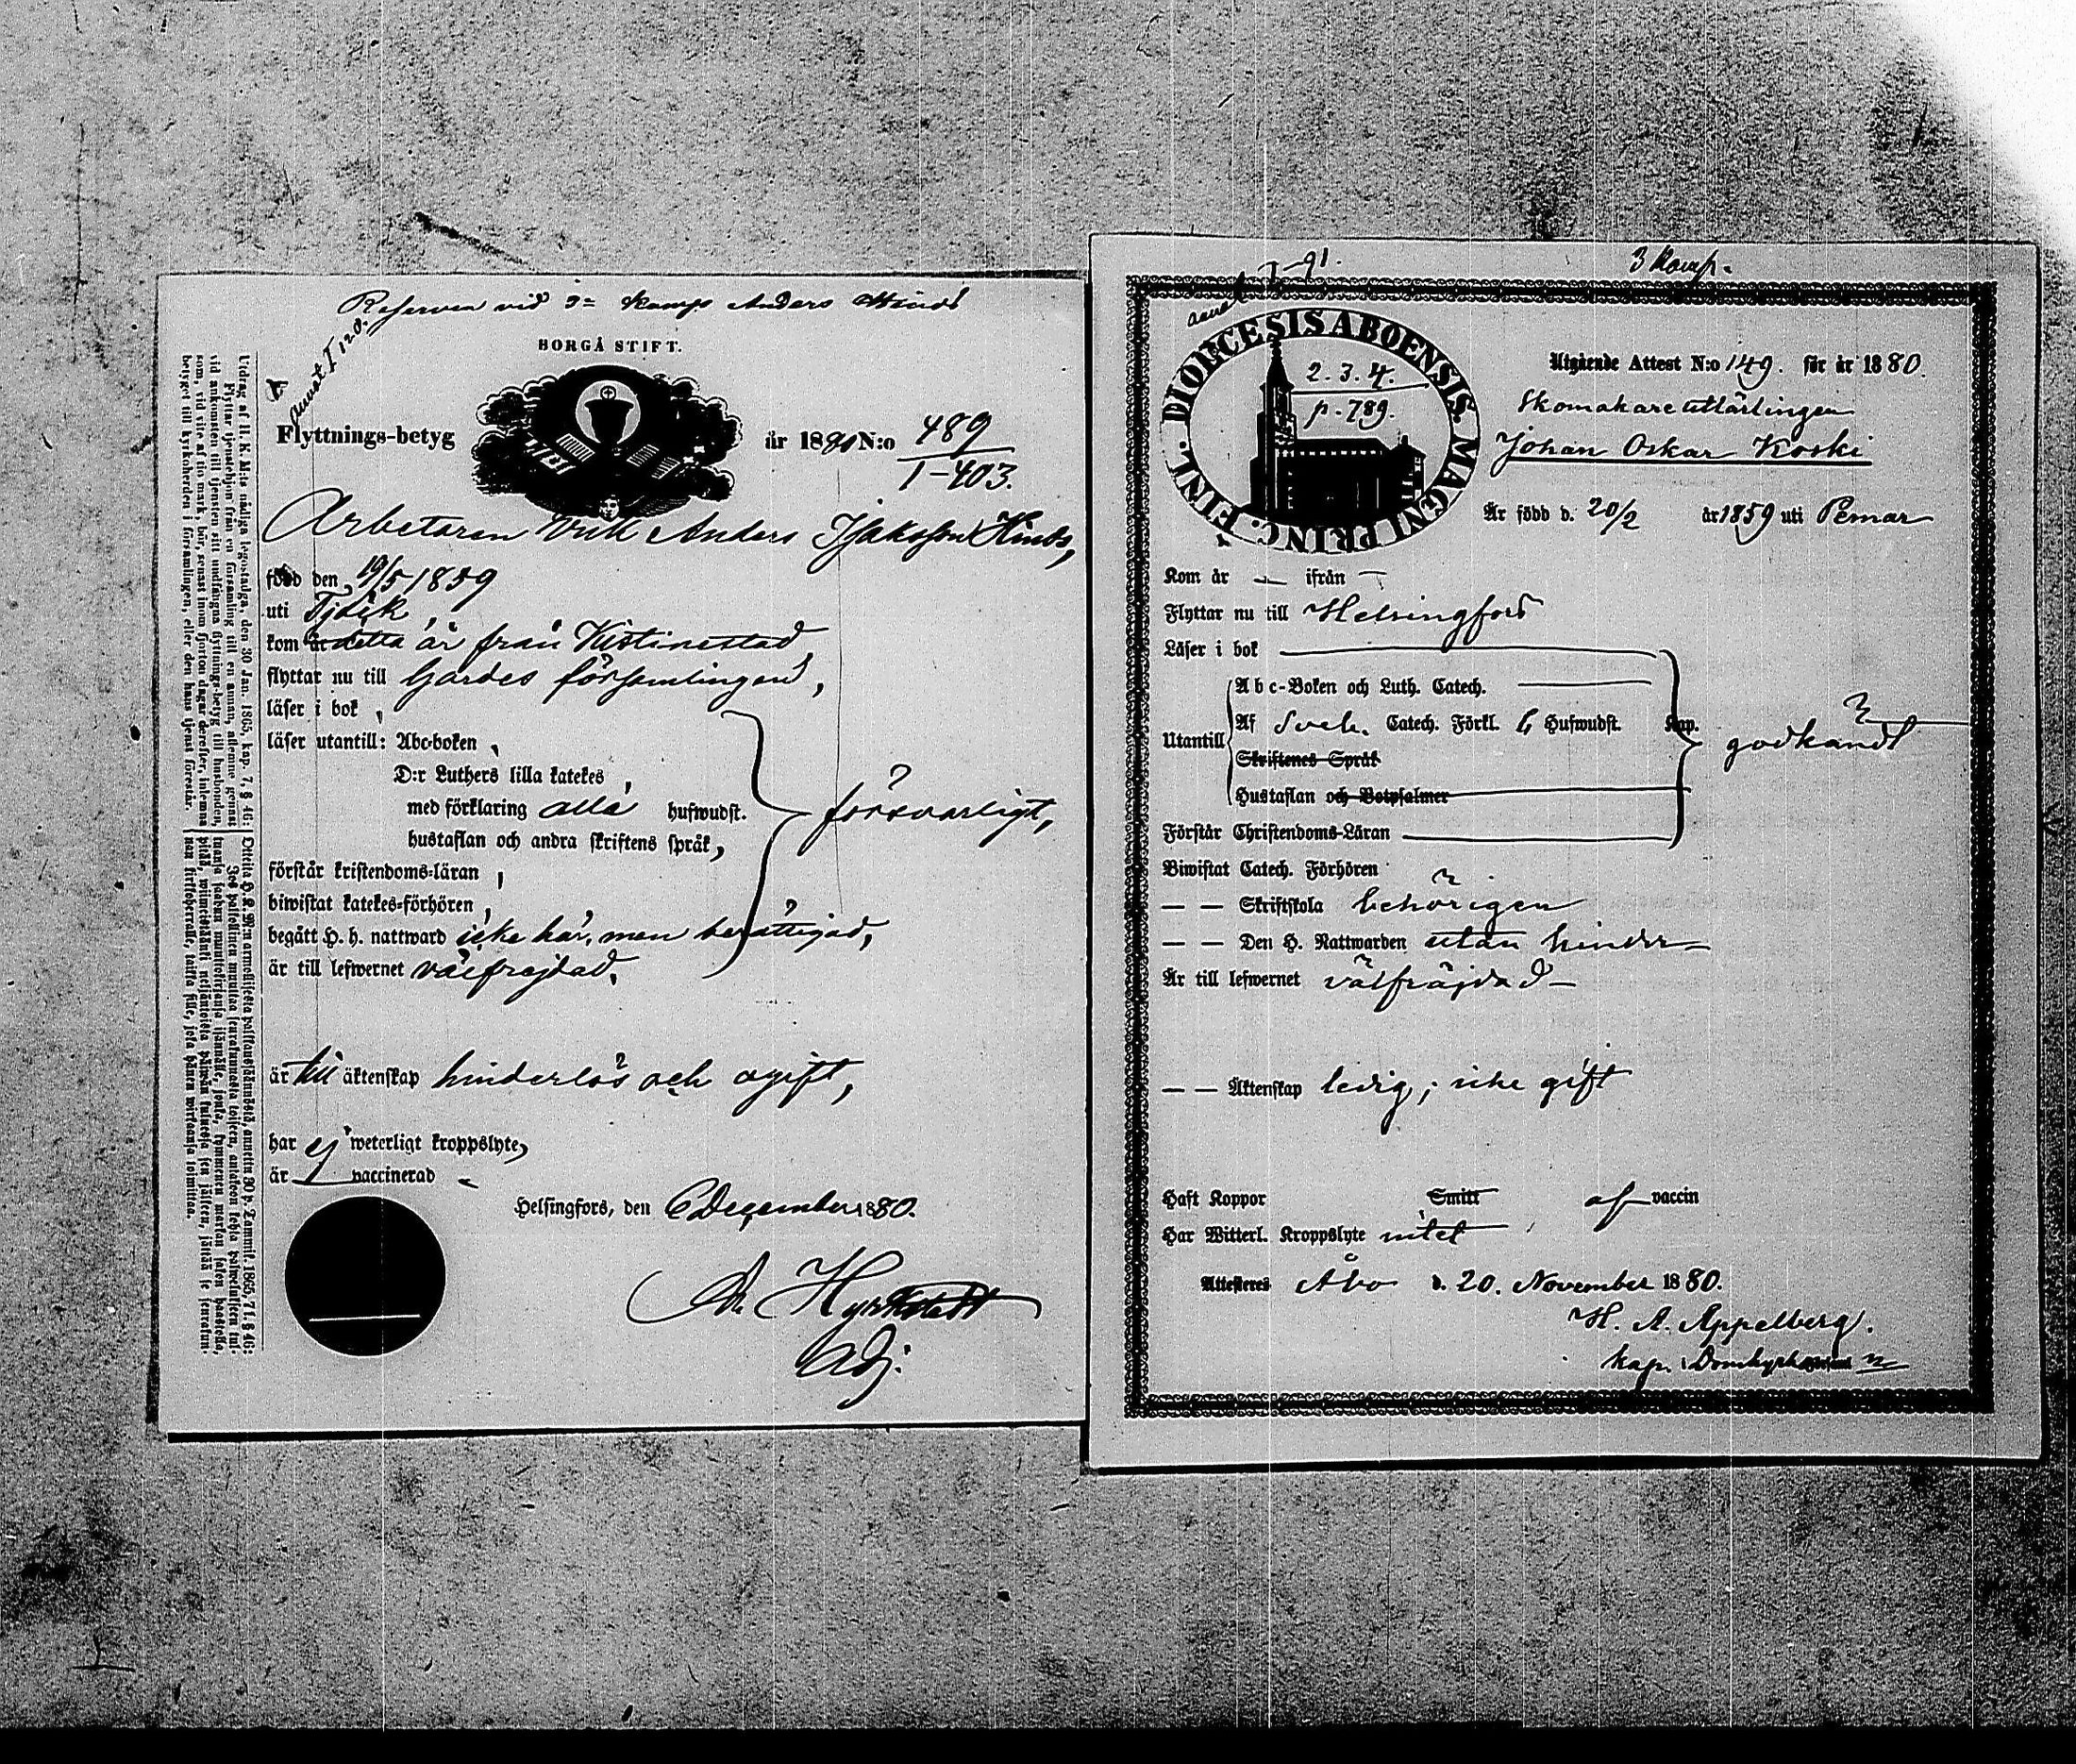 Reserven vid 3= komp Anders Hinds
annot I 120.
BORGÅ STIFT.
Flyttnings-betyg år 1880 N:o 489
1-403.
Arbetaren Anders Isaksson Hinds,
född den 19/5 1859
uti Tjöck,
kom år detta år från Kristinestad,
flyttar nu till Gardes församlingen,
läser i bok,
läser utantill: Abc-boken,
D:r Luthers lilla katekes,
med förklaring alla hufwudst.
hustaflan och andra skriftens språk,
försvarligt,
förstår kristendoms-läran,
biwistat katekes-förhören,
begått H. h. nattward icke här, men berättigad,
är till lefwernet välfrejdad.
är till äktenskap hinderlös och ogift,
har ej weterligt kroppslyte,
är vaccinerad
Helsingfors, den 6 December 1880.
Adj:
Utdrag af H. K. M:ts nådiga legostadga, den 30 Jan. 1865, kap. 7, § 46:
Flyttar tjenstehjon från en församling till en annan, allemne genast
vid ankomsten till tjensten sitt undfångna flyttnings-betyg till husbonden,
som, vid wite af tio mark, bör, senast inom fjorton dagar derefter, inlemna
betyget till kyrkoherden i församlingen, eller den hans tjenst förestår.
3 Komp.
DIOECESIS ABOENSIS. MAGNI PRINC. FINL.
2. 3. 4.
p. 789.
Utgående Attest N:o 149. för år 1880.
Skomakareutlärlingen
Johan Oskar Koski
Är född d. 20/2 år 1859 uti Pemar
Kom år — ifrån —
Flyttar nu till Helsingfors
Läser i bok
Abc-Boken och Luth. Catech.
Utantill Af Sveb. Catech. Förkl. 6 Hufwudst. Kap.
Skriftenes Språk
Hustaflan och Botpsalmer
godkändt
Förstår Christendoms-Läran
Biwistat Catech. Förhören
— — Skriftskola behörigen
— — Den H. Nattwarden utan hinder
Är till lefwernet välfräjdad —
— — Äktenskap ledig; icke gift
Haft Koppor Smitt af vaccin
Har Witterl. Kroppslyte intet
Attesteres Åbo d. 20. November 1880.
H. A. Appelberg.